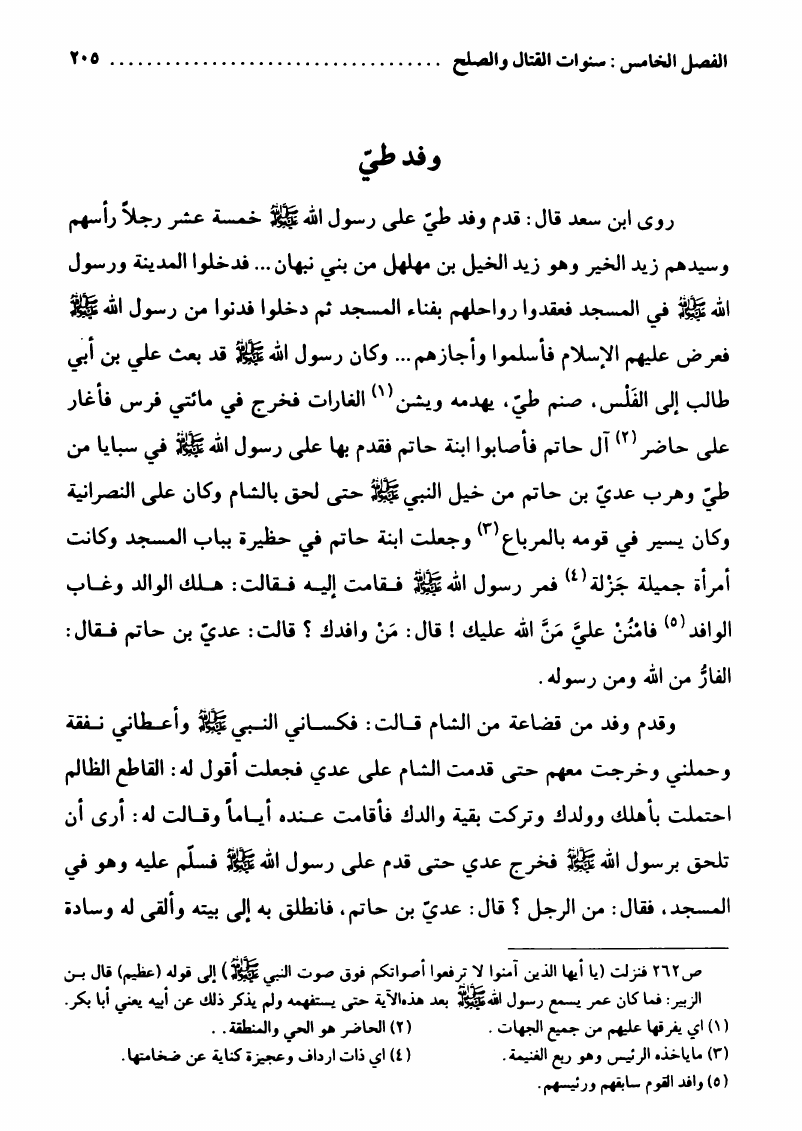 الفصل الخامس : سنوات القتال والصلح .................................... ٢٠٥
وفد طيّ
روى ابن سعد قال: قدم وفد طيّ على رسول الله ﷺ خمسة عشر رجلاً رأسهم
وسيدهم زيد الخير وهو زيد الخيل بن مهلهل من بني نبهان... فدخلوا المدينة ورسول
الله ﷺ في المسجد فعقدوا رواحلهم بفناء المسجد ثم دخلوا فدنوا من رسول الله ﷺ
فعرض عليهم الإسلام فأسلموا وأجازهم... وكان رسول الله ﷺ قد بعث علي بن أبي
طالب إلى الفَلْس، صنم طيّ، يهدمه ويشن(١) الغارات فخرج في مائتي فرس فأغار
على حاضر(٢) آل حاتم فأصابوا ابنة حاتم فقدم بها على رسول الله ﷺ في سبايا من
طيّ وهرب عديّ بن حاتم من خيل النبي ﷺ حتى لحق بالشام وكان على النصرانية
وكان يسير في قومه بالمرباع(٣) وجعلت ابنة حاتم في حظيرة بباب المسجد وكانت
أمرأة جميلة جَزْلة(٤) فمر رسول الله ﷺ فقامت إليه فقالت: هلك الوالد وغاب
الوافد(٥) فامْنُنْ عليَّ مَنَّ الله عليك ! قال: مَنْ وافدك ؟ قالت: عديّ بن حاتم فقال:
الفارُّ من الله ومن رسوله.
وقدم وفد من قضاعة من الشام قالت: فكساني النبي ﷺ وأعطاني نفقة
وحملني وخرجت معهم حتى قدمت الشام على عدي فجعلت أقول له: القاطع الظالم
احتملت بأهلك وولدك وتركت بقية والدك فأقامت عنده أياماً وقالت له: أرى أن
تلحق برسول الله ﷺ فخرج عدي حتى قدم على رسول الله ﷺ فسلّم عليه وهو في
المسجد، فقال: من الرجل ؟ قال: عديّ بن حاتم، فانطلق به إلى بيته وألقى له وسادة
ص٢٦٢ فنزلت (يا أيها الذين آمنوا لا ترفعوا أصواتكم فوق صوت النبي ﷺ) إلى قوله (عظيم) قال بن
الزبير: فما كان عمر يسمع رسول الله ﷺ بعد هذه الآية حتى يستفهمه ولم يذكر ذلك عن أبيه يعني أبا بكر.
(١) اي يفرقها عليهم من جميع الجهات . (٢) الحاضر هو الحي والمنطقة. .
(٣) ماياخذه الرئيس وهو ربع الغنيمة. (٤) اي ذات ارداف وعجيزة كناية عن ضخامتها.
(٥) وافد القوم سابقهم ورئيسهم.